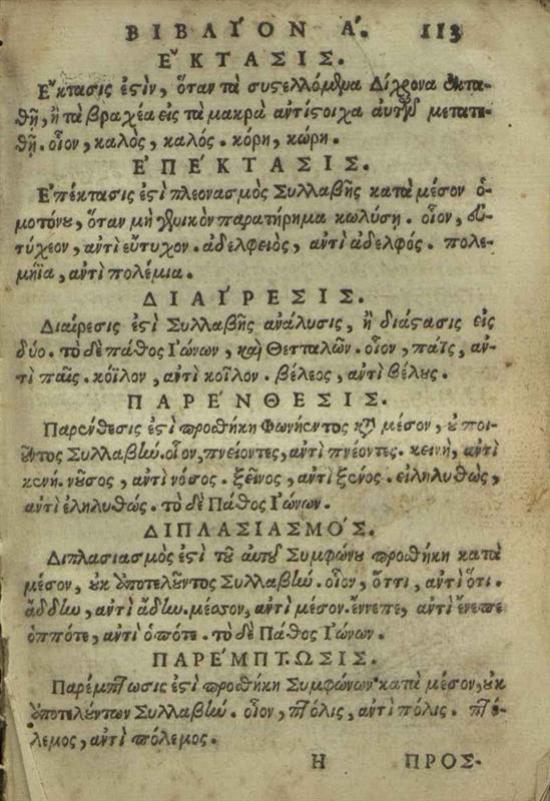 ΒΙΒΛΙ´ΟΝ Α´. 113
Ε῎ΚΤΑΣΙΣ.
Ε῎κτασίς ἐςὶν, ὅταν τὰ συςελλόμενα Δίχρονα ἐκτα-
θῇ, ἢ τὰ βραχέα εἰς τὰ μακρὰ ἀντίςοιχα αὐτῶν μετατε-
θῇ. οἷον, καλὸς, καλός. κόρη, κώρη.
Ε᾿ΠΕ´ΚΤΑΣΙΣ.
Ε᾿πέκτασίς ἐςι πλεονασμὸς Συλλαβῆς κατὰ μέσον ὁ-
μοτόνου, ὅταν μὴ γενικὸν παρατήρημα κωλύσῃ. οἷον, εὐ-
τύχεον, ἀντὶ εὔτυχον. ἀδελφειὸς, ἀντὶ ἀδελφός. πολε-
μήϊα, ἀντὶ πολέμια.
ΔΙΑΙ´ΡΕΣΙΣ.
Διαίρεσίς ἐςι Συλλαβῆς ἀνάλυσις, ἢ διάςασις εἰς
δύο. τὸ δὲ πάθος Ι᾿ώνων, καὶ Θετταλῶν. οἷον, πάϊς, ἀν-
τὶ παῖς. κόϊλον, ἀντὶ κοῖλον. βέλεος, ἀντὶ βέλους.
ΠΑΡΕ´ΝΘΕΣΙΣ.
Παρένθεσίς ἐςι προσθήκη Φωνήεντος κατὰ μέσον, οὐ ποι-
οῦντος Συλλαβήν. οἷον, πνείοντες, ἀντὶ πνέοντες. κεινὴ, ἀντὶ
κενή. νοῦσος, ἀντὶ νόσος. ξεῖνος, ἀντὶ ξένος. εἰληλυθὼς,
ἀντὶ ἐληλυθώς. τὸ δὲ Πάθος Ι᾿ώνων.
ΔΙΠΛΑΣΙΑΣΜΟ´Σ.
Διπλασιασμὸς ἐςὶ τοῦ αὐτοῦ Συμφώνου προσθήκη κατὰ
μέσον, οὐκ ἀποτελοῦντος Συλλαβήν. οἷον, ὅττι, ἀντὶ ὅτι.
ἄδδην, ἀντὶ ἄδην. μέσσον, ἀντὶ μέσον. ἔννεπε, ἀντὶ ἔνεπε
ὁππότε, ἀντὶ ὁπότε. τὸ δὲ Πάθος Ι᾿ώνων.
ΠΑΡΕ´ΜΠΤΩΣΙΣ.
Παρέμπτωσίς ἐςι προσθήκη Συμφώνων κατὰ μέσον, οὐκ
ἀποτελούντων Συλλαβήν. οἷον, πτόλις, ἀντὶ πόλις. πτό-
λεμος, ἀντὶ πόλεμος.
Η ΠΡΟΣ-